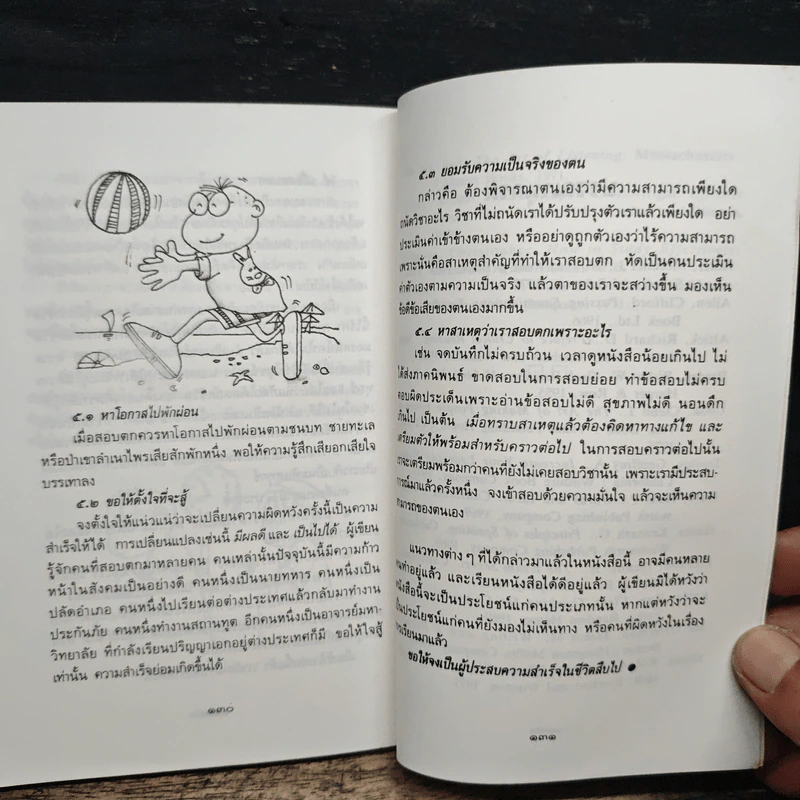 ๕.๑ หาโอกาสไปพักผ่อน
เมื่อสอบตกควรหาโอกาสไปพักผ่อนตามชนบท ชายทะเล
หรือป่าเขาลำเนาไพรเสียสักพักหนึ่ง พอให้ความรู้สึกเสียอกเสียใจ
บรรเทาลง
๕.๒ ขอให้ตั้งใจที่จะสู้
จงตั้งใจให้แน่วแน่ว่าจะเปลี่ยนความผิดหวังครั้งนี้เป็นความ
สำเร็จให้ได้ การเปลี่ยนแปลงเช่นนี้ มีผลดี และ เป็นไปได้ ผู้เขียน
รู้จักคนที่สอบตกมาหลายคน คนเหล่านั้นปัจจุบันนี้มีความก้าว
หน้าในสังคมเป็นอย่างดี คนหนึ่งเป็นนายทหาร คนหนึ่งเป็น
ปลัดอำเภอ คนหนึ่งไปเรียนต่อต่างประเทศแล้วกลับมาทำงาน
ประกันภัย คนหนึ่งทำงานสถานทูต อีกคนหนึ่งเป็นอาจารย์มหา-
วิทยาลัย ที่กำลังเรียนปริญญาเอกอยู่ต่างประเทศก็มี ขอให้ใจสู้
เท่านั้น ความสำเร็จย่อมเกิดขึ้นได้
๑๓๐
๕.๓ ยอมรับความเป็นจริงของตน
กล่าวคือ ต้องพิจารณาตนเองว่ามีความสามารถเพียงใด
ถนัดวิชาอะไร วิชาที่ไม่ถนัดเราได้ปรับปรุงตัวเราแล้วเพียงใด อย่า
ประเมินค่าเข้าข้างตนเอง หรืออย่าดูถูกตัวเองว่าไร้ความสามารถ
เพราะนั่นคือสาเหตุสำคัญที่ทำให้เราสอบตก หัดเป็นคนประเมิน
ค่าตัวเองตามความเป็นจริง แล้วตาของเราจะสว่างขึ้น มองเห็น
ข้อดีข้อเสียของตนเองมากขึ้น
๕.๔ หาสาเหตุว่าเราสอบตกเพราะอะไร
เช่น จดบันทึกไม่ครบถ้วน เวลาดูหนังสือน้อยเกินไป ไม่
ได้ส่งภาคนิพนธ์ ขาดสอบในการสอบย่อย ทำข้อสอบไม่ครบ
ตอบผิดประเด็นเพราะอ่านข้อสอบไม่ดี สุขภาพไม่ดี นอนดึก
เกินไป เป็นต้น เมื่อทราบสาเหตุแล้วต้องคิดหาทางแก้ไข และ
เตรียมตัวให้พร้อมสำหรับคราวต่อไป ในการสอบคราวต่อไปนั้น
เราจะเตรียมพร้อมกว่าคนที่ยังไม่เคยสอบวิชานั้น เพราะเรามีประสบ-
การณ์มาแล้วครั้งหนึ่ง จงเข้าสอบด้วยความมั่นใจ แล้วจะเห็นความ
สามารถของตนเอง
แนวทางต่าง ๆ ที่ได้กล่าวมาแล้วในหนังสือนี้ อาจมีคนหลาย
คนทำอยู่แล้ว และเรียนหนังสือได้ดีอยู่แล้ว ผู้เขียนมิได้หวังว่า
หนังสือนี้จะเป็นประโยชน์แก่คนประเภทนั้น หากแต่หวังว่าจะ
เป็นประโยชน์แก่คนที่ยังมองไม่เห็นทาง หรือคนที่ผิดหวังในเรื่อง
การเรียนมาแล้ว
ขอให้จงเป็นผู้ประสบความสำเร็จในชีวิตสืบไป ●
๑๓๑